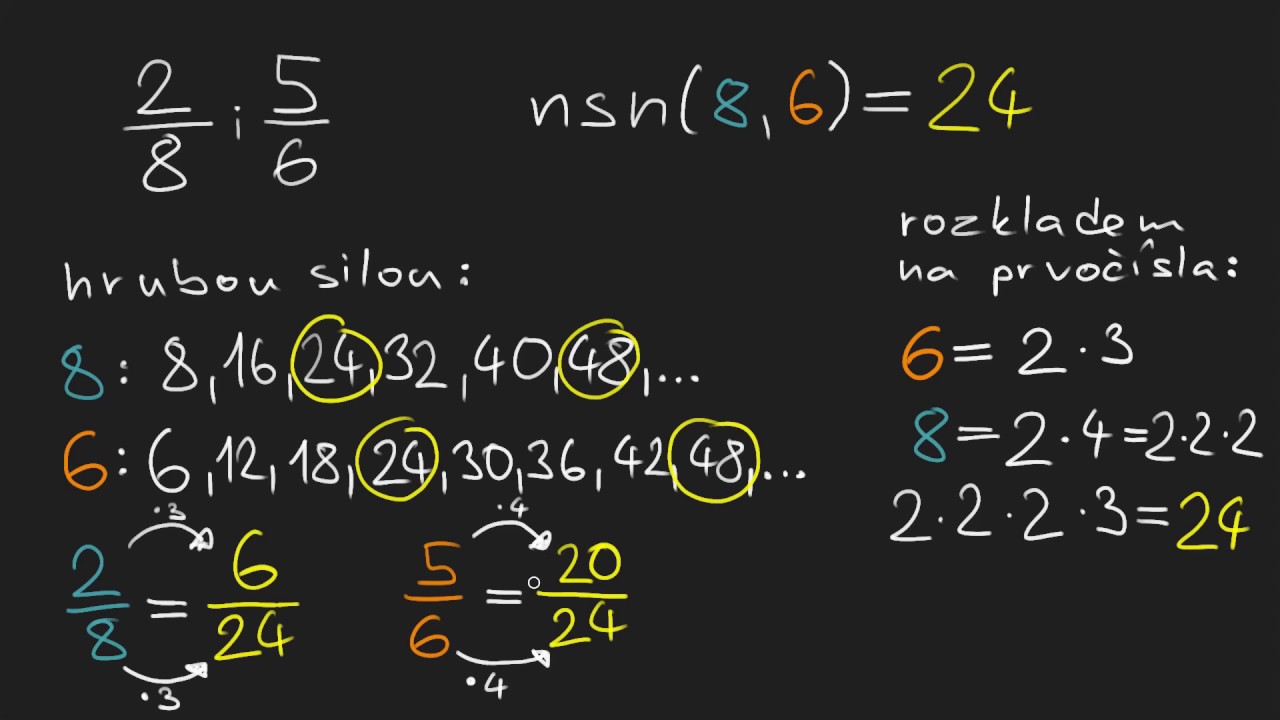 2/8 ; 5/6
nsn(8,6)=24
hrubou silou:
8: 8,16,24,32,40,48,...
6: 6,12,18,24,30,36,42,48,...
·3
2/8 = 6/24
·3
·4
5/6 = 20/24
·4
rozkladem
na prvočísla:
6=2·3
8=2·4=2·2·2
2·2·2·3=24